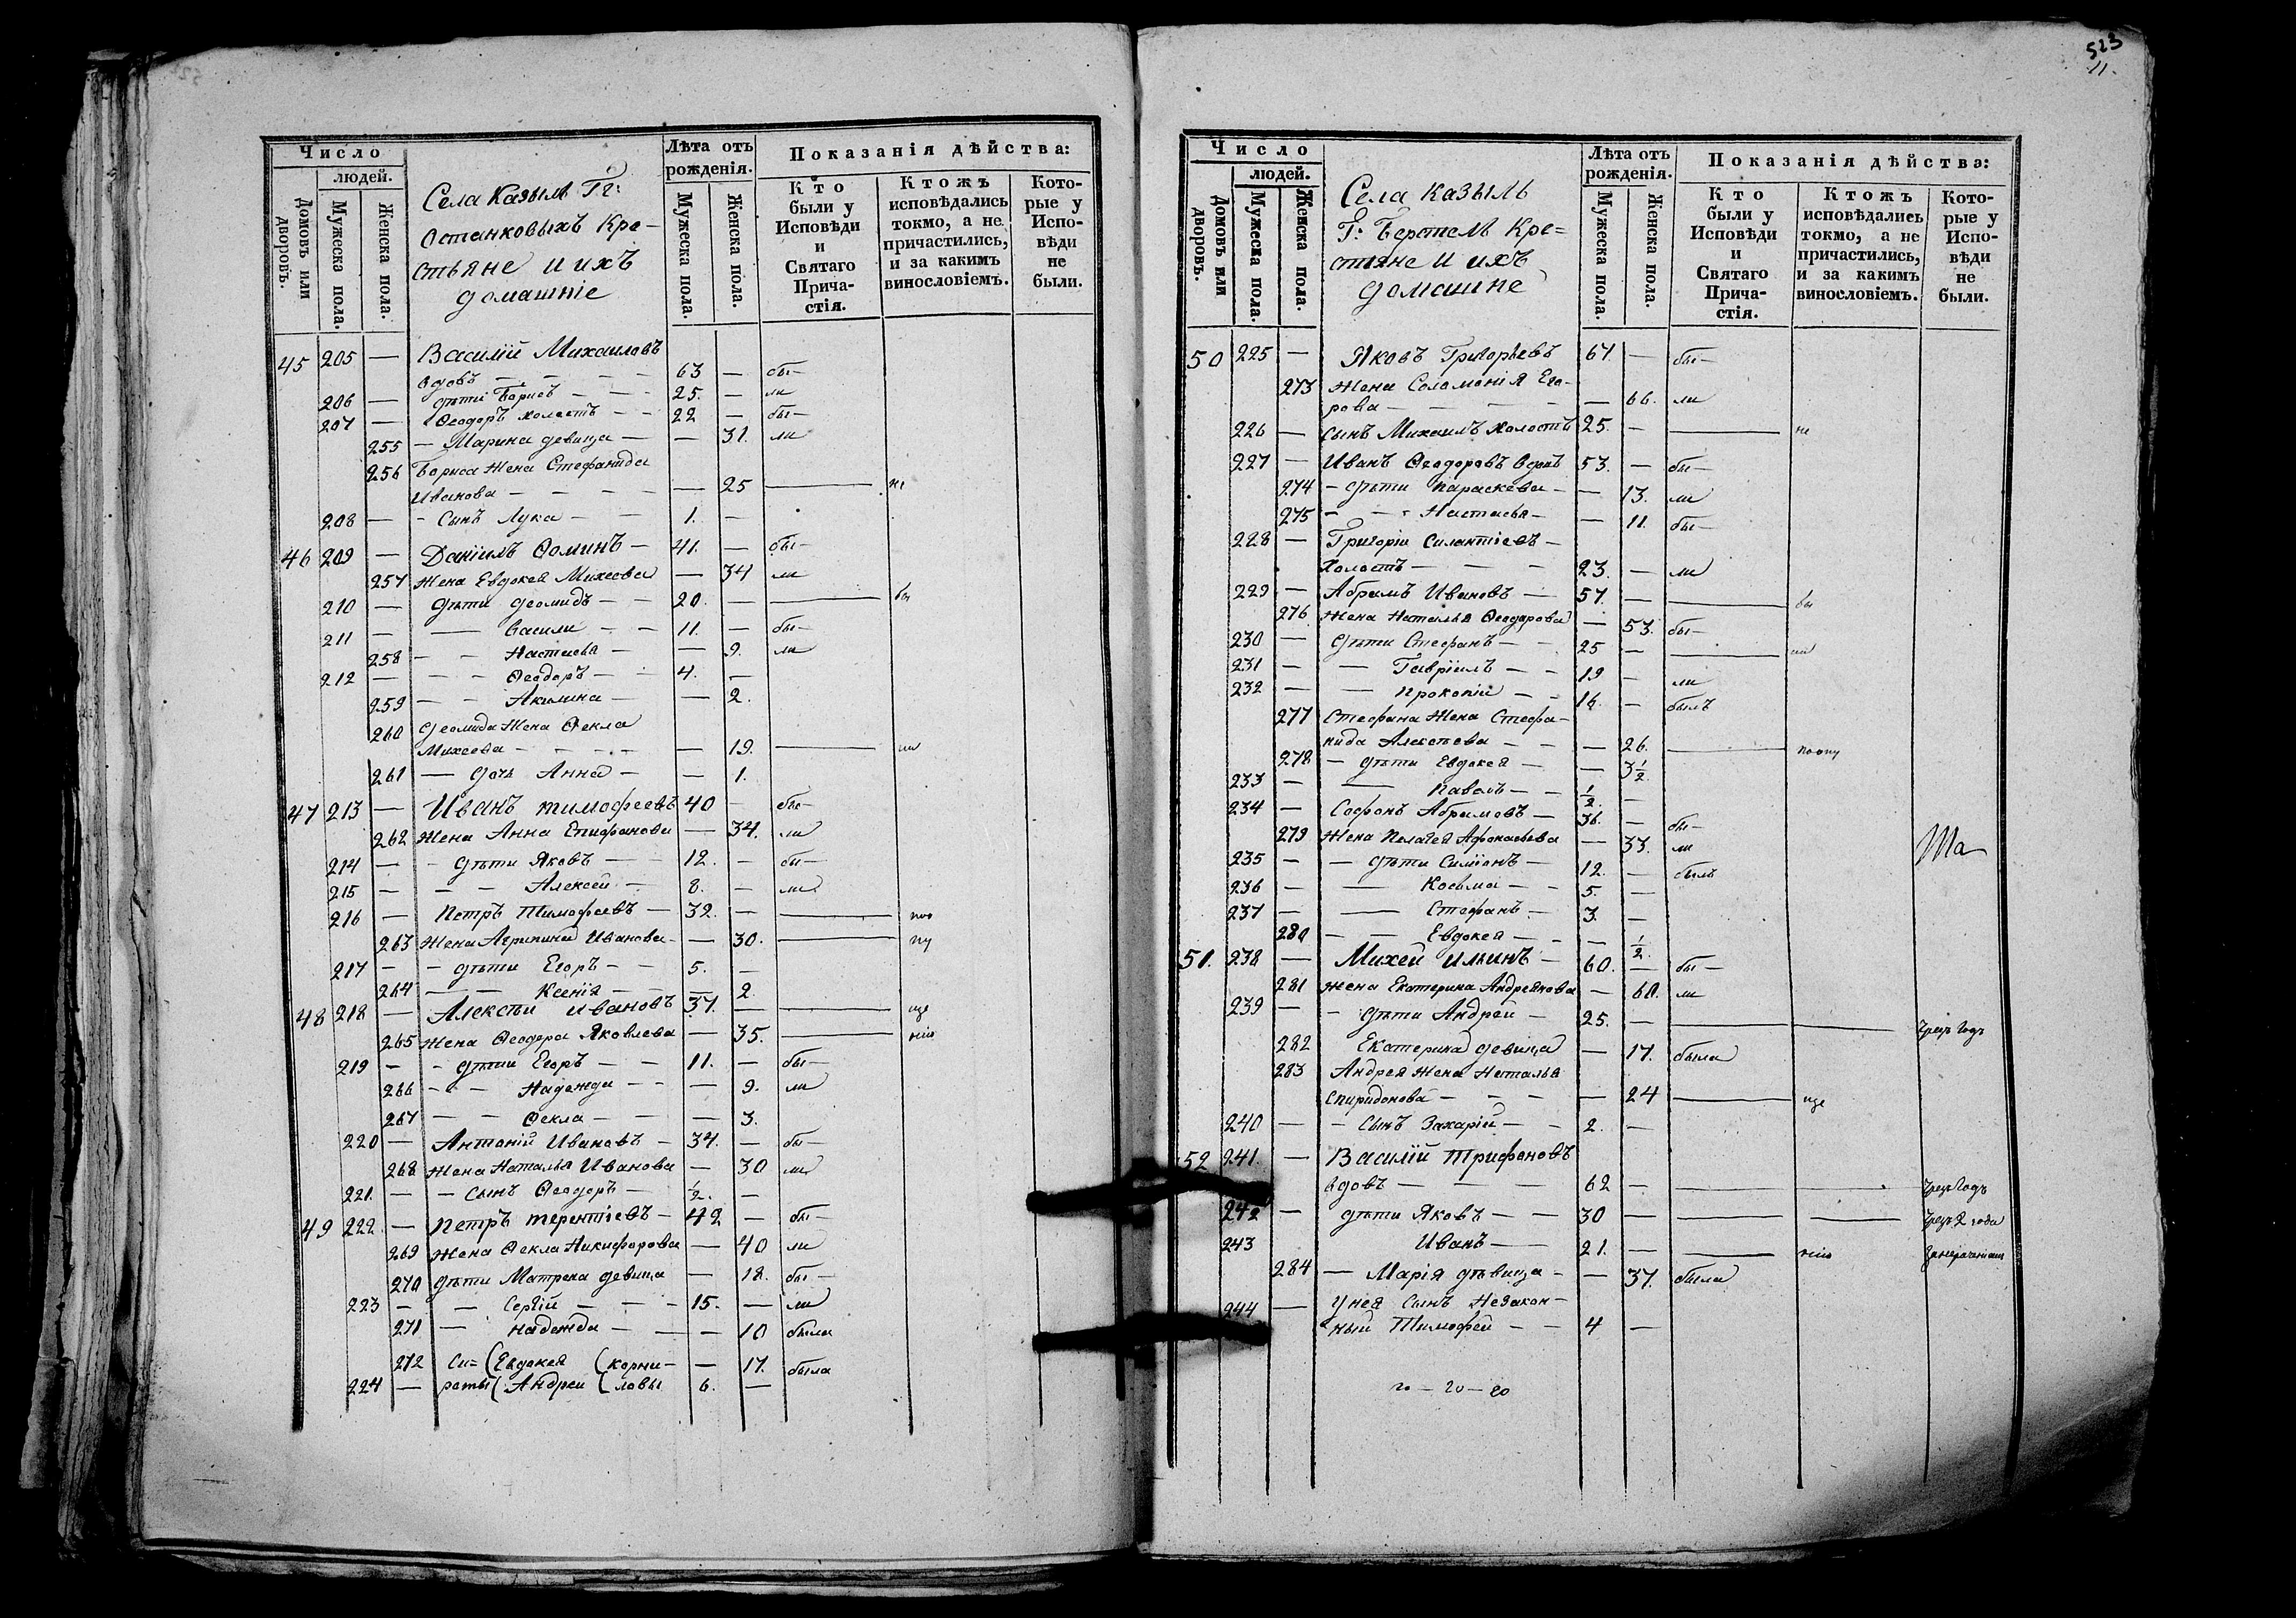 523
11.
Число
людей.
Домовъ или дворовъ.
Мужеска пола.
Женска пола.
Села Казыль Гг:
Останковыхъ Кре-
стьяне и ихъ
домашніе
Лѣта отъ рожденія.
Мужеска пола.
Женска пола.
Показанія дѣйства:
Кто были у Исповѣди и Святаго Прича-стія.
Ктожъ исповѣдались токмо, а не причастились, и за какимъ винословіемъ.
Кото-рые у Испо-вѣди не были.
45 205 — Василій Михаиловъ
вдовъ — — — 63 — бы—
206 — дѣти Борисъ — — 25. — ли
207 — Ѳеодоръ холостъ — — 22 — бы—
255 — Марина девица — — 31. ли
256 Бориса Жена Стефанида
Иванова — — — — — 25 — не
208 — - Сынъ Лука — — 1. —
46 209 — Даніилъ Ѳоминъ — 41. — бы—
257 Жена Евдокея Михеева — 34 ли
210 — дѣти Деомидъ — — 20. — — бы
211 — — Васили — — 11. — бы—
258 — — Настасья — — 9. ли
212 — — — Ѳеодоръ — — 4. —
259 — — Акилина — — 2.
260 Деомида Жена Ѳекла
Михеева — — — — — 19. — ли
261 — дочь Анна — — 1.
47 213 — Иванъ Тимофеевъ 40 — бы—
262 Жена Анна Епифанова — 34. ли
214 — - дѣти Яковъ — — 12. — бы—
215 — — — Алексей — 8. — ли
216 — Петръ Тимофеевъ — 32. — —
263 Жена Агрипина Иванова — — 30. — пу
217 — - дѣти Егоръ — — 5. —
264 — — Ксенія — — — 2.
48 218 — Алексѣй Ивановъ 37. — — ще
265 Жена Ѳеодора Яковлева — 35. — нію
219 — - дѣти Егоръ — — 11. — бы—
266 — — Надежда — — — 9. ли
267 — — Ѳекла — — — 3.
220 — Антоній Ивановъ — 34. — бы—
268 Жена Наталья Иванова — 30 ли
221. — - Сынъ Ѳеодоръ — 1/2. —
49 222. — Петръ Терентіевъ — 42 — бы—
269 Жена Ѳекла Никифорова — 40 ли
270 дѣти Матрена девица — 18. бы—
223 — — Сергій — — — 15. — ли
271 — Надежда — — — 10 была
272 Си= (Евдокея (корни— — 17. была
224 — роты (Андреи (ловы 6. —
Число
людей.
Домовъ или дворовъ.
Мужеска пола.
Женска пола.
Села Казыль
Г: Берстель Кре=
стьяне и ихъ
домашне
Лѣта отъ рожденія.
Мужеска пола.
Женска пола.
Показанія дѣйства:
Кто были у Исповѣди и Святаго Прича-стія.
Ктожъ исповѣдались токмо, а не причастились, и за какимъ винословіемъ.
Кото-рые у Испо-вѣди не были.
50 225 — Яковъ Григорьевъ 67. — бы—
273 Жена Соломонія Его-
рова — — — — — 66. ли
226 — Сынъ Михаилъ холостъ 25. — — не
227 — Иванъ Ѳеодоровъ вдовъ 53. — бы—
274 — дѣти Параскева — — 13. ли
275 — — - Настасья — — 11. бы—
228 — Григорій Силантіевъ —
Холостъ — — — 23. — ли
229 — Абрамъ Ивановъ — 57. — — бы
276 Жена Наталья Ѳеодорова — 53. бы—
230 — дѣти Стефанъ — — 25 — — ли
231 — — Гавріилъ — — 19 — ли
232 — — Прокопій — — 16. — былъ
277 Стефана Жена Стефа-
нида Алексѣева — — — 26. —
278 — дѣти Евдокея — — 3 1/2.
233 — — Павелъ — — 1/2. —
234 — Софонъ Абрамовъ — 36. — бы—
279 Жена Пелагея Афонасьева — 33. ли
235 — — дѣти Симіонъ — 12. — былъ
236 — — Косьма — — 5. —
237 — — Стефанъ — 3. —
280 — — Евдокея — — — 1/2.
51. 238 — Михей Ильинъ — 60. — бы—
281 Жена Екатерина Андреянова — 60. ли
239 — - дѣти Андрей — 25. — — — Чрезъ годъ
282 Екатерина девица — 17. была
283 Андрея Жена Наталья
Спиридонова — — — — 24 — ще
240 — - Сынъ Захарій — — 2. —
52 241. — Василій Трифоновъ
вдовъ — — — 62 — — — Чрезъ годъ
242 — дѣти Яковъ — — 30 — — — Чрезъ 2 года
243 Иванъ — 21. — — нію
284 — Марія дѣвица — — 37. была
244 — У нея Сынъ Незакон-
ный Тимофей — — 4 —
20 — 20 — 20